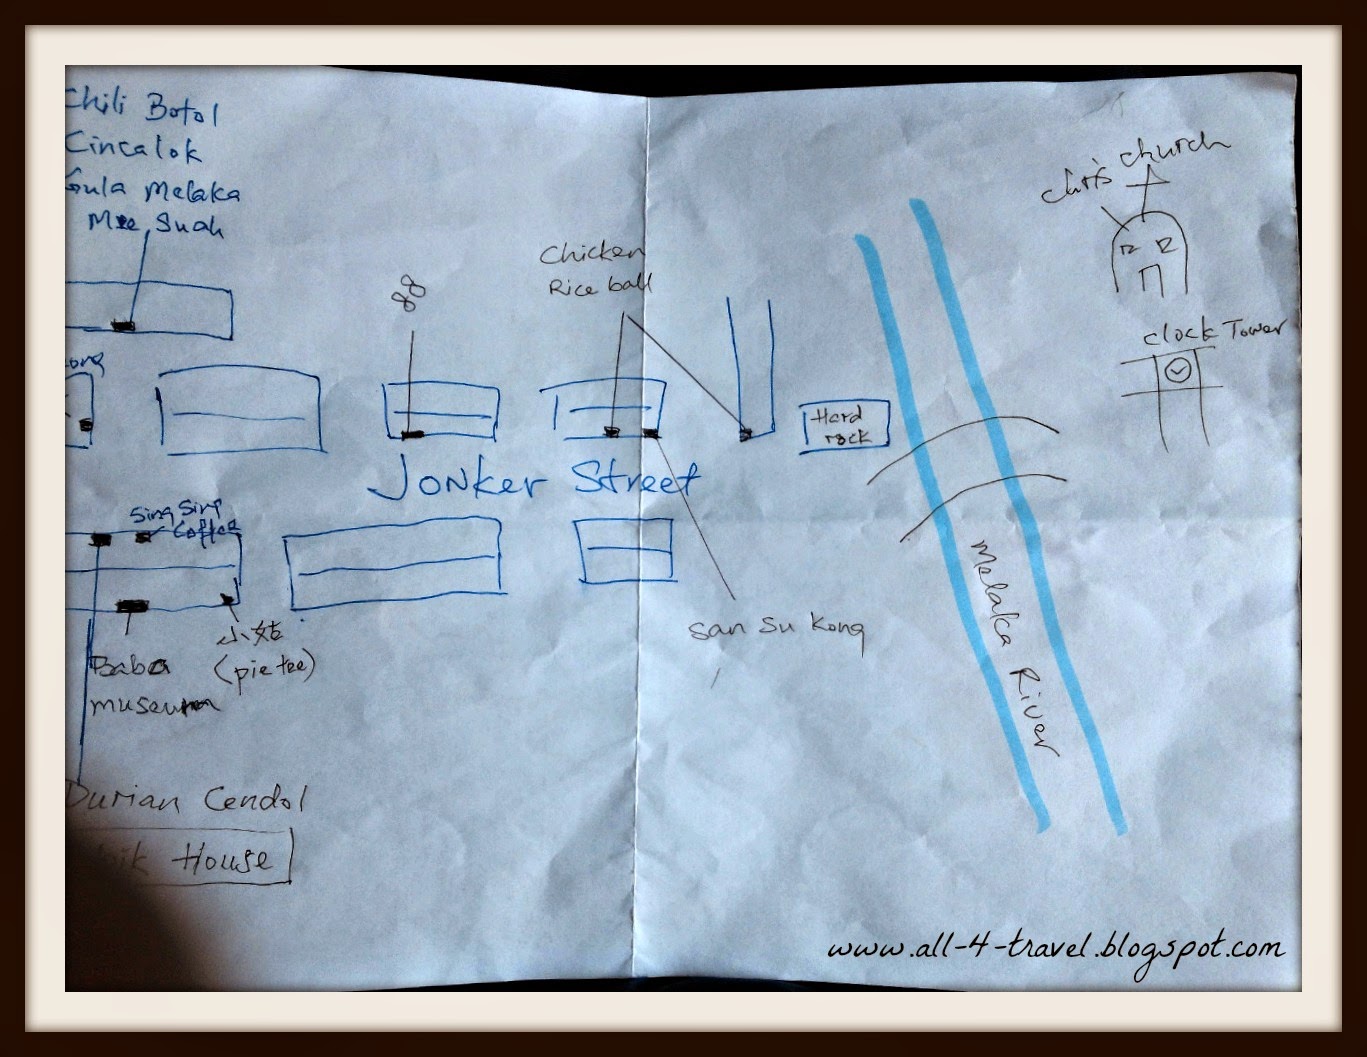 Chili Botol
Cincalok
Gula Melaka
Mee Suah
88
Chicken
Rice ball
Chris church
Clock Tower
Hard
rock
Jonker Street
Sing Sing
Coffee
小姑
(pie tee)
Baba
museum
San Su Kong
Melaka River
Durian Cendol
House
www.all-4-travel.blogspot.com